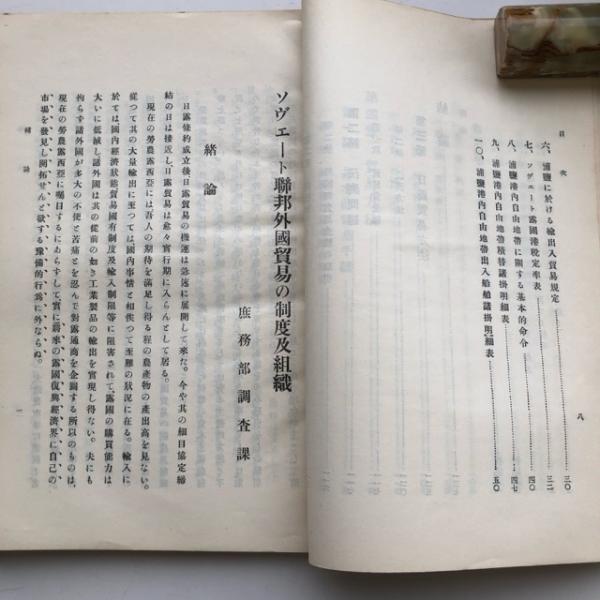 目次
六、浦鹽に於ける輸出入貿易規定……三〇
七、ソヴエート露國港稅定率表……三二
八、浦鹽港內自由地帶に關する基本的命令……四〇
九、浦鹽港內自由地帶積替諸掛明細表……四七
一〇、浦鹽港內自由地帶出入船舶諸掛明細表……五〇
八
ソヴエート聯邦外國貿易の制度及組織
庶務部調査課
緒論
日露條約成立後日露貿易の機運は急速に展開して來た。今や其の細目協定締
結の日は接近し、日露貿易は愈々實行期に入らんとして居る。
現在の勞農露西亞には吾人の期待を滿足し得る程の農產物の產出高を見ない。
從つて其の大量輸出に至つては國內事情と相俟つて至難の狀況に在る。輸入に
於ては國內經濟狀態貿易國有制度及輸入制限等に阻害されて、露國の購買能力は
大いに低減し諸外國は其の從前の如き工業製品の輸出を實現し得ない。夫にも
拘らず諸外國が多大の不便と苦痛とを忍んで對露通商を企圖する所以のものは、
現在の勞農露西亞に囑目するにあらずして、實に將來の露國復興經濟界に自己の
市場を發見し開拓せんと欲する豫備的行爲に外ならぬ。
緒論
一